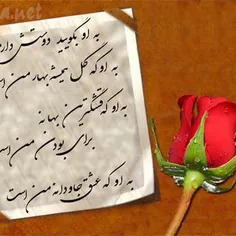 .net
به او بگویید دوستش دارم
به او که گل همیشه بهار من است
به او که قشنگترین بهانه
برای بودن من است
به او که عشق جاودانه من است